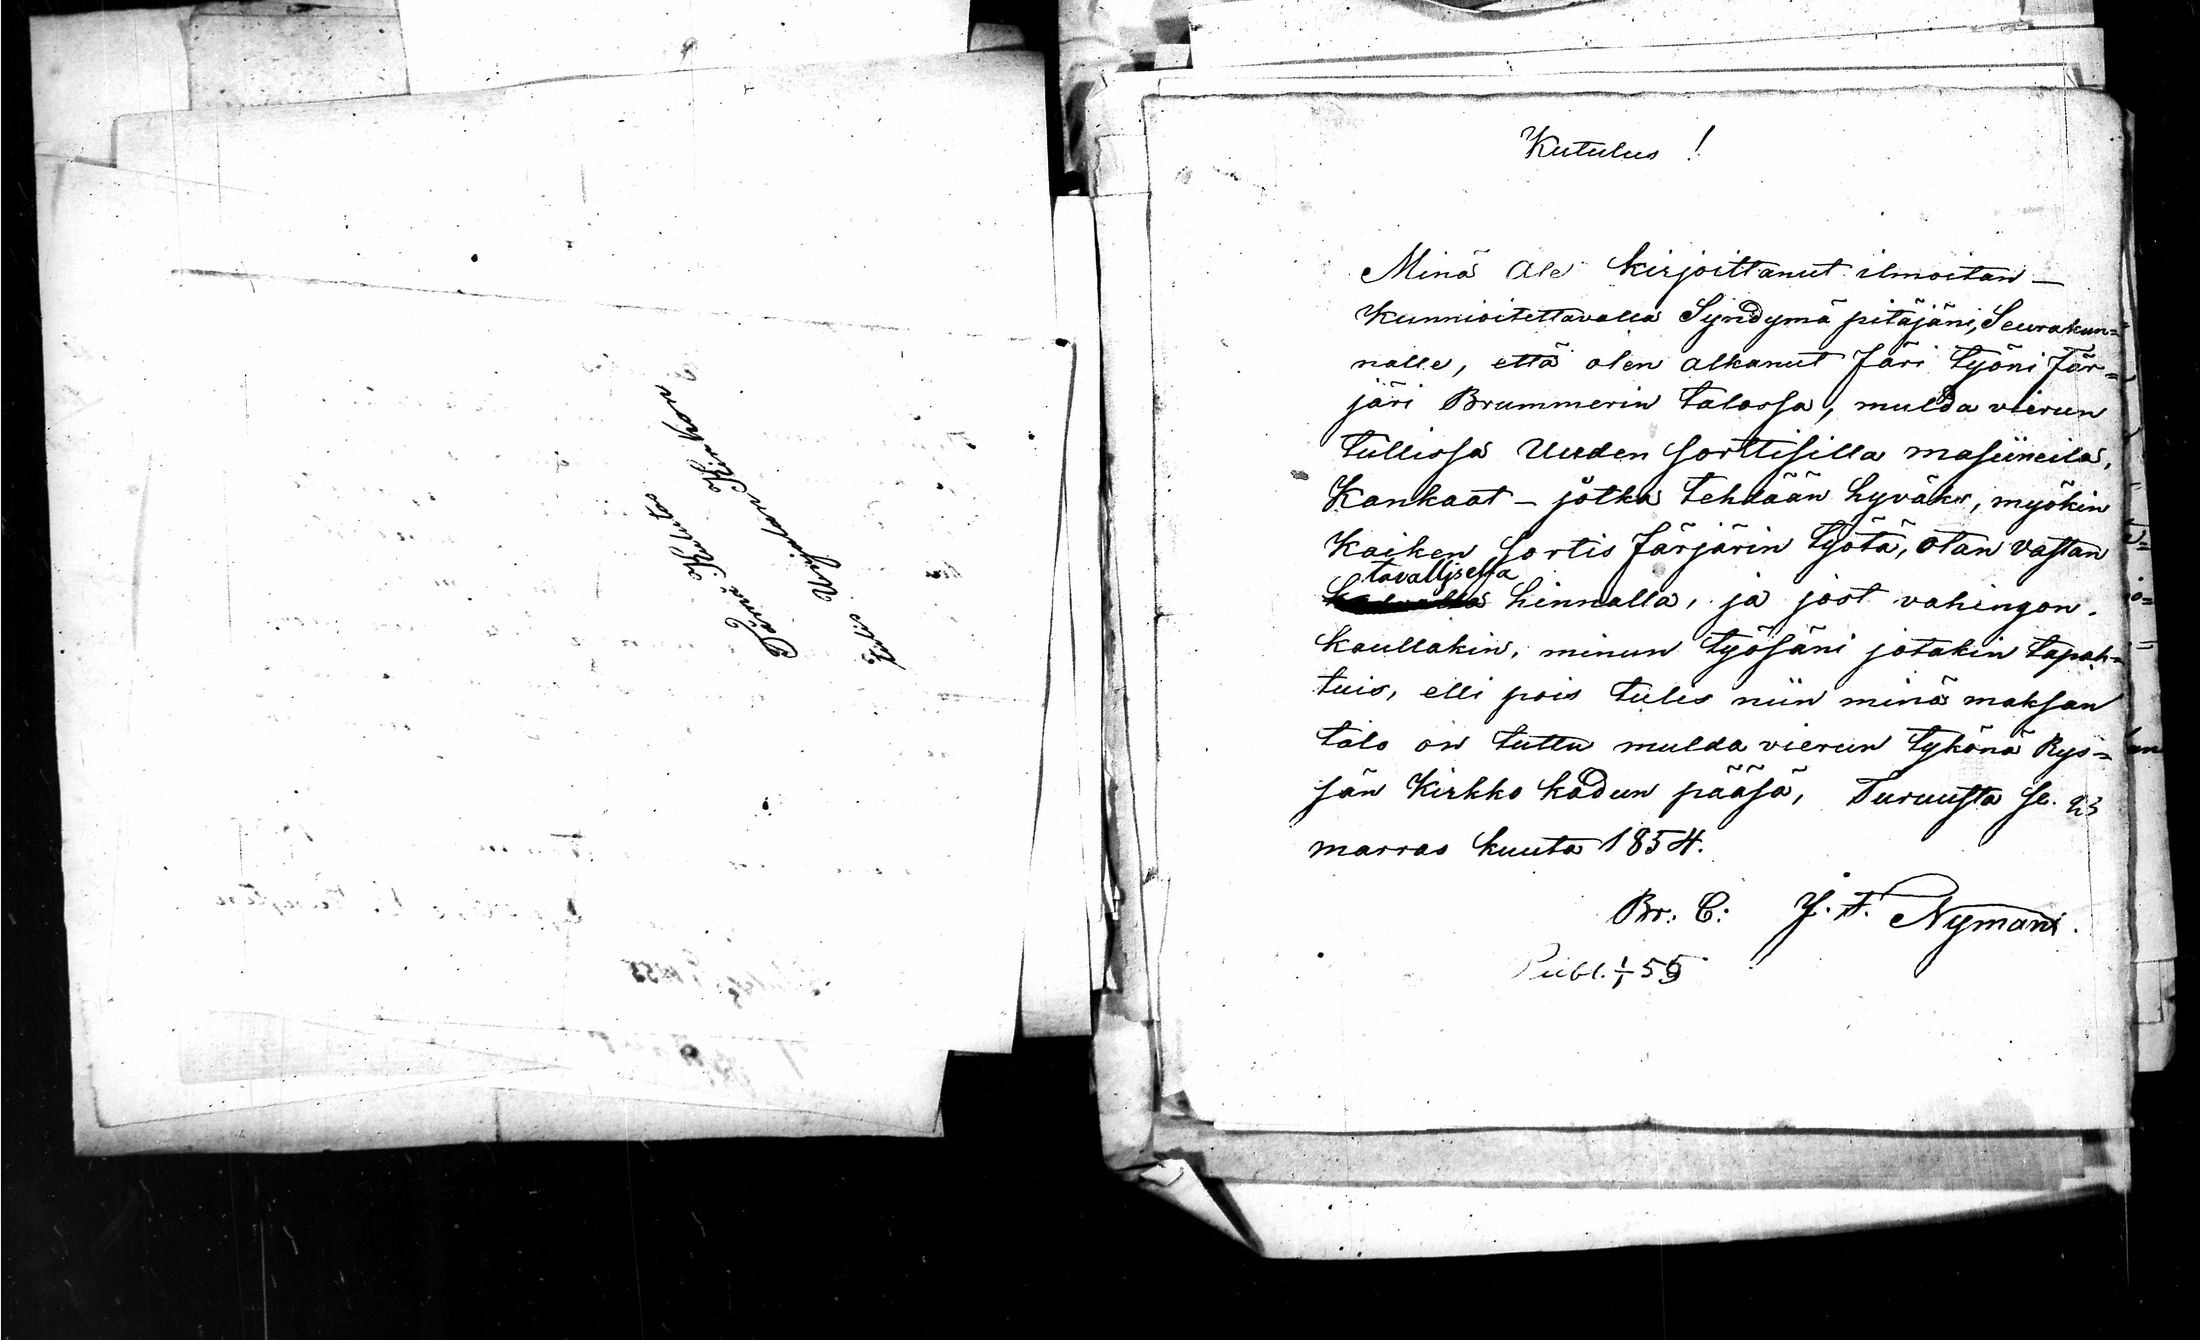 Tämä Kulutos
Tulis Urjalan Kirkon
Kutulus!
Minä Ale kirjoittanut ilmoitan –
Kunnioitettavalla Syndymä pitäjäni, Seurakun=
nalle, että olen alkanut Färi työni Fär=
järi Brummerin talossa, mulda vierun
tullissa Uuden sorttisilla masiineila,
Kankaat – jotka tehdään hyväks, myökin
Kaiken sortis Färjärin työtä, otan vastan
tavallisella
hinnalla, ja jost vahingon.
kaullakin, minun työsäni jotakin tapah=
tuis, elli pois tulis niin minä maksan
talo on tuttu mulda vierun tykönä Rys=
sän Kirkko kadun pääsä, Turuusta se. 23
marras kuuta 1854.
Br. C: J. F. Nyman.
Publ. 1/1 55